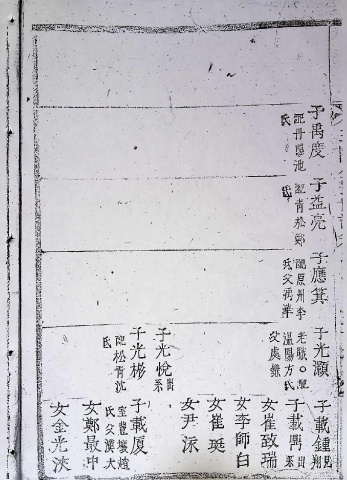 子禹度
配丹陽池
氏
子益亮
配青松鄭
氏
子應箕
配原州李
氏父禹華
子光灝
老職○配
溫陽方氏
父處鐵
子光悅
子光彬
配青松沈
氏
子載鍾
子載興
女崔致瑞
女李師白
女崔珽
女尹泳
子載厦
室豊壤趙
氏父漢大
女鄭最中
女金光浹